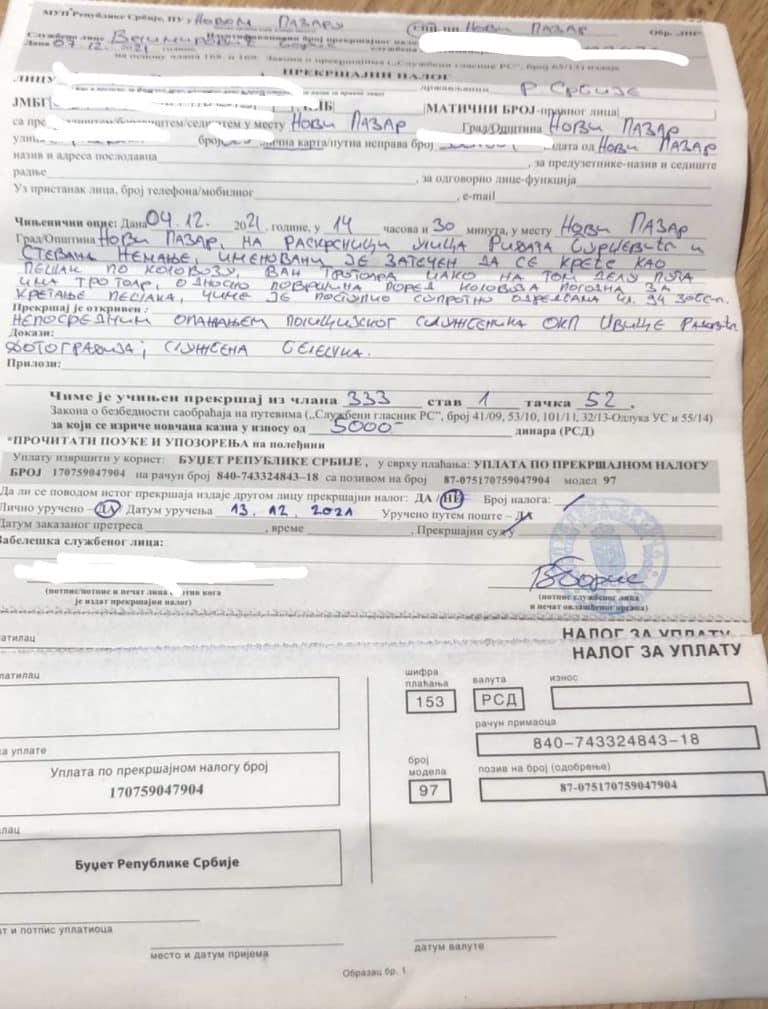 МУП Републике Србије, ПУ у НОВОМ ПАЗАРУ НОВИ ПАЗАР Обр. „ПН“
Службено лице
Дана 07.12.2021
на основу члана 168. и 169. Закона о прекршајима („Службени гласник РС“, број 65/13) издаје
ПРЕКРШАЈНИ НАЛОГ
ЛИЦУ држављанин Р СРБИЈЕ
ЈМБГ ПИБ МАТИЧНИ БРОЈ-правног лица
са пребивалиштем/боравиштем/седиштем у месту НОВИ ПАЗАР Град/Општина НОВИ ПАЗАР
улица број лична карта/путна исправа број издата од НОВИ ПАЗАР
назив и адреса послодавца , за предузетнике-назив и седиште
радње , за одговорно лице-функција
Уз пристанак лица, број телефона/мобилног , e-mail
Чињенични опис: Дана 04.12. 2021. године, у 14 часова и 30 минута, у месту НОВИ ПАЗАР
Град/Општина НОВИ ПАЗАР, НА РАСКРСНИЦИ УЛИЦА РИФАТА БУРЏЕВИЋА И
СТЕВАНА НЕМАЊЕ, ИМЕНОВАНИ ЈЕ ЗАТЕЧЕН ДА СЕ КРЕЋЕ КАО
ПЕШАК ПО КОЛОВОЗУ, ВАН ТРОТОАРА ИАКО НА ТОМ ДЕЛУ ПУТА
ИМА ТРОТОАР, ОДНОСНО ПОВРШИНА ПОРЕД КОЛОВОЗА ПОГОДНА ЗА
КРЕТАЊЕ ПЕШАКА, ЧИМЕ ЈЕ ПОСТУПИО СУПРОТНО ОДРЕДБАМА ЧЛ. 94 ЗОБСП.
Прекршај је откривен:
НЕПОСРЕДНИМ ОПАЖАЊЕМ ПОЛИЦИЈСКОГ СЛУЖБЕНИКА ОКП ИВИЦЕ
Докази:
ФОТОГРАФИЈА, СЛУЖБЕНА БЕЛЕШКА.
Прилози:
Чиме је учињен прекршај из члана 333 став 1 тачка 52,
Закона о безбедности саобраћаја на путевима („Службени гласник РС“, број 41/09, 53/10, 101/11, 32/13-Одлука УС и 55/14)
за који се изриче новчана казна у износу од 5000- динара (РСД)
*ПРОЧИТАТИ ПОУКЕ И УПОЗОРЕЊА на полеђини
Уплату извршити у корист: БУЏЕТ РЕПУБЛИКЕ СРБИЈЕ, у сврху плаћања: УПЛАТА ПО ПРЕКРШАЈНОМ НАЛОГУ
БРОЈ 170759047904 на рачун број 840-743324843-18 са позивом на број 87-075170759047904 модел 97
Да ли се поводом истог прекршаја издаје другом лицу прекршајни налог: ДА / НЕ Број налога: /
Лично уручено – ДА Датум уручења 13.12.2021 Уручено путем поште – ДА
Датум заказаног претреса , време , Прекршајни суд у
Забелешка службеног лица:
(потпис/потпис и печат лица против кога
је издат прекршајни налог)
(потпис службеног лица
и печат овлашћеног органа)
НАЛОГ ЗА УПЛАТУ
НАЛОГ ЗА УПЛАТУ
шифра плаћања валута износ
153 РСД
рачун примаоца
840-743324843-18
Уплата по прекршајном налогу број
170759047904
број модела позив на број (одобрење)
97 87-075170759047904
Буџет Републике Србије
место и датум пријема датум валуте
Образац бр. 1